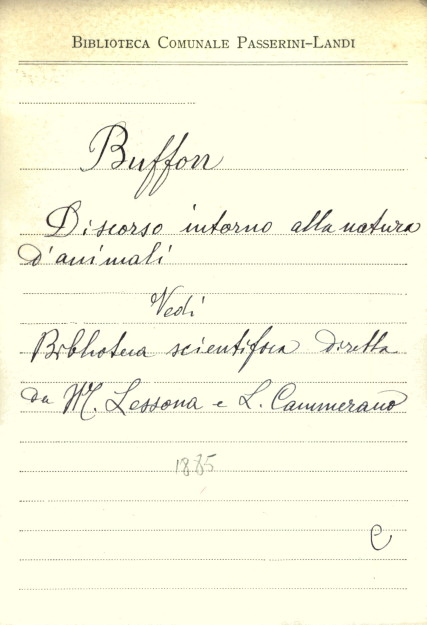 BIBLIOTECA COMUNALE PASSERINI-LANDI
Buffon
Discorso intorno alla natura
d'animali
Vedi
Biblioteca scientifica diretta
da M. Lessona e L. Cammerano
1885
C